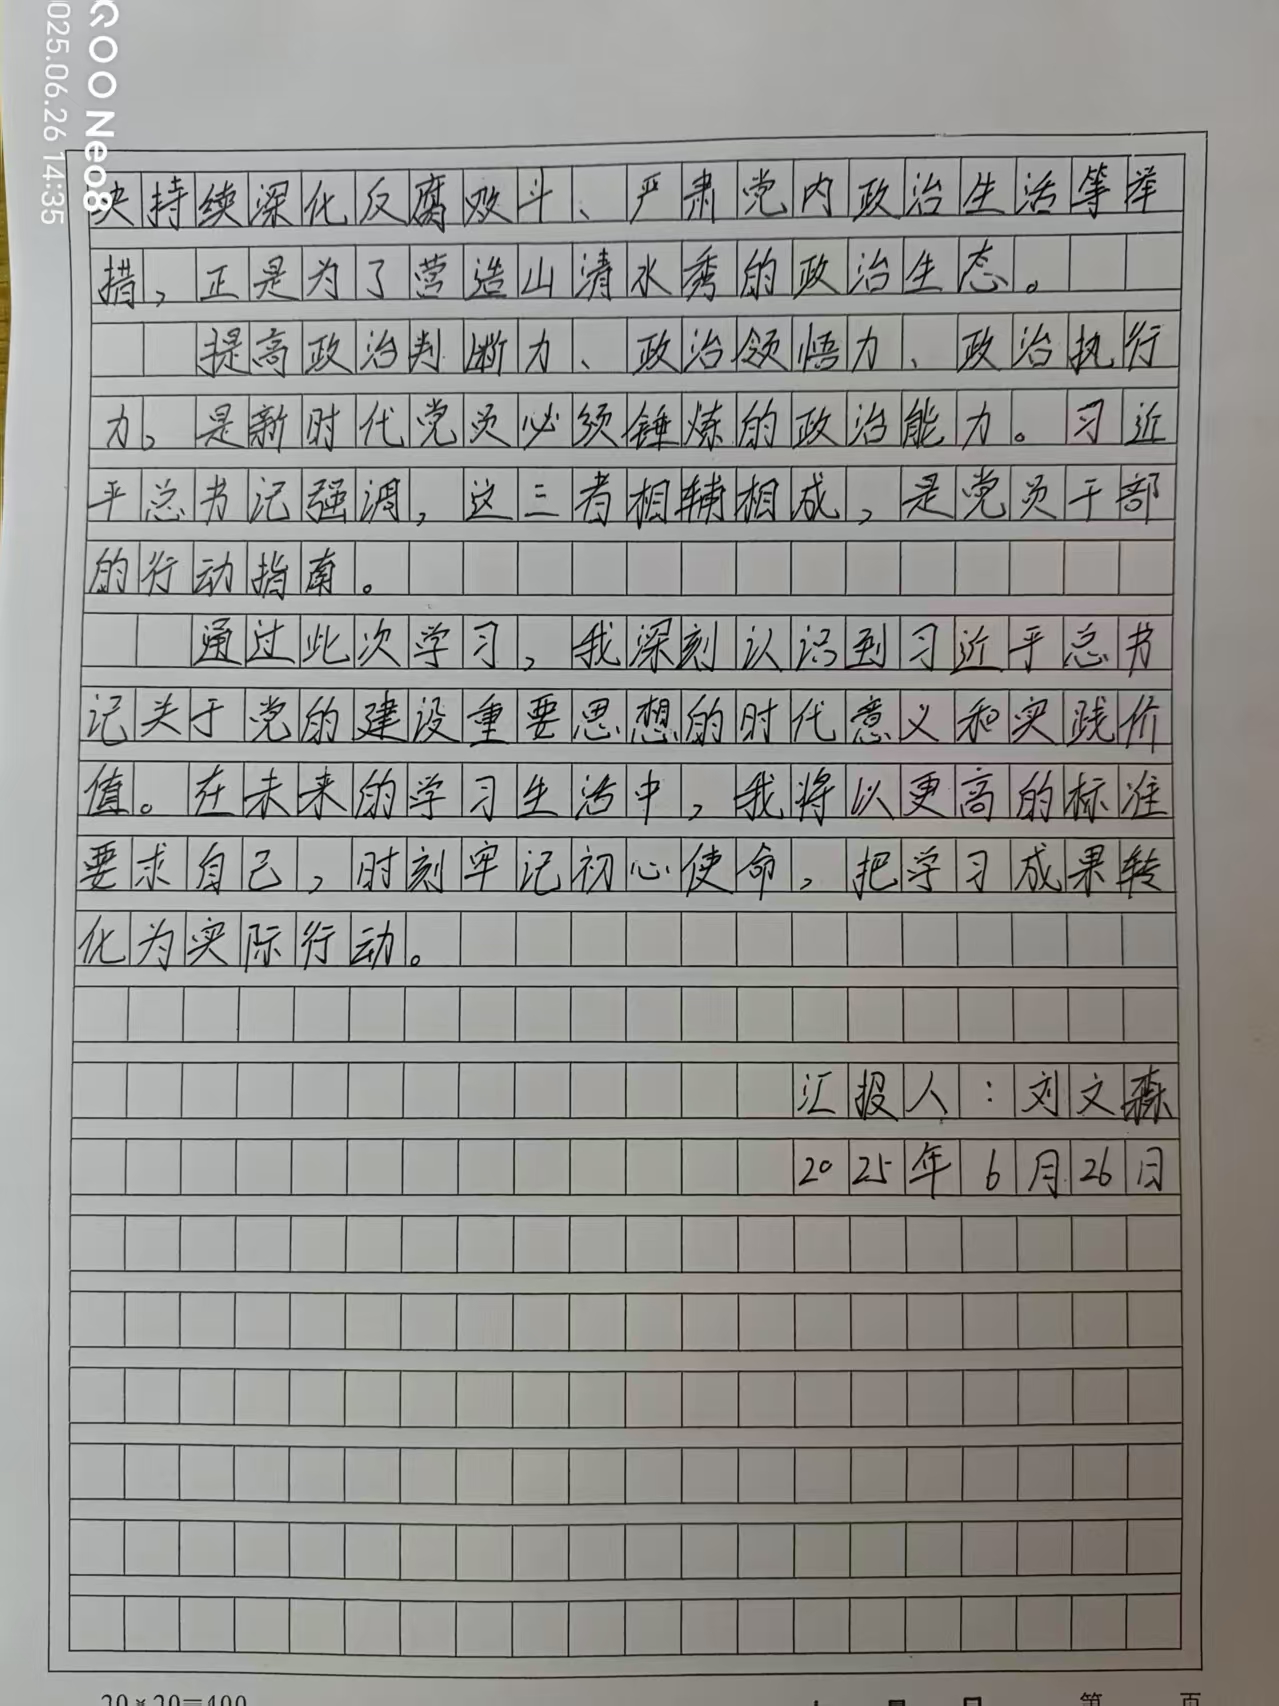 QOO Neo8
025.06.26 14:35
央持续深化反腐败斗、严肃党内政治生活等举
措，正是为了营造山清水秀的政治生态。
提高政治判断力、政治领悟力、政治执行
力，是新时代党员必须锤炼的政治能力。习近
平总书记强调，这三者相辅相成，是党员干部
的行动指南。
通过此次学习，我深刻认识到习近平总书
记关于党的建设重要思想的时代意义和实践价
值。在未来的学习生活中，我将以更高的标准
要求自己，时刻牢记初心使命，把学习成果转
化为实际行动。
汇报人：刘文森
2025年6月26日
20×20=400
第 页